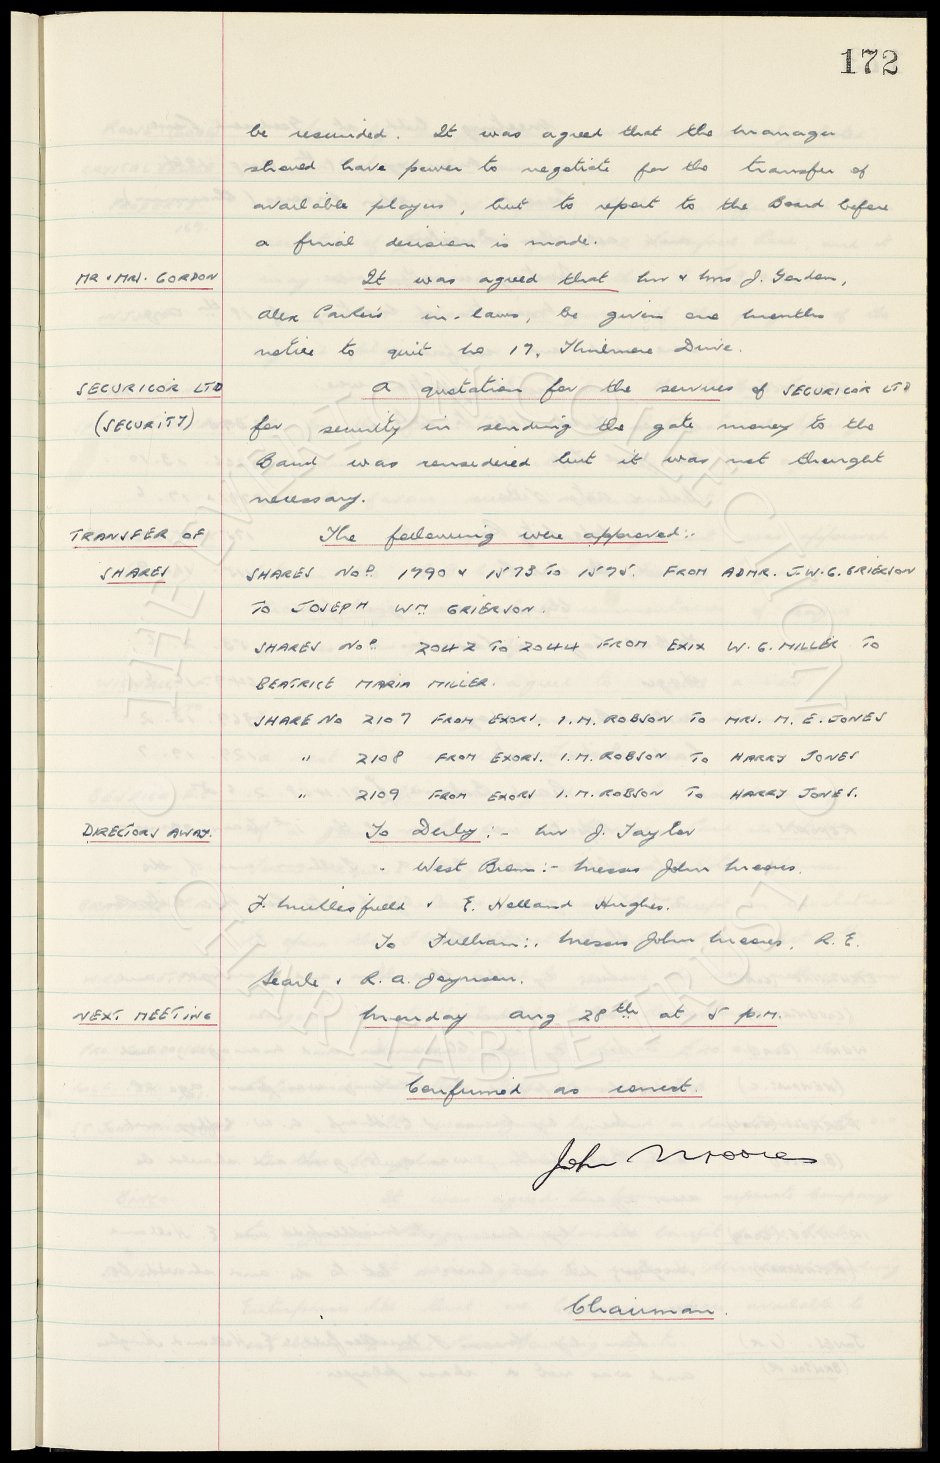 172
be rescinded. It was agreed that the manager
should have power to negotiate for the transfer of
available players, but to report to the Board before
a final decision is made.
MR & MRS. GORDON It was agreed that Mr & Mrs J. Gordon,
Alex Parker's in-laws, be given one months
notice to quit no 17, Thirlmere Drive.
SECURICOR LTD A quotation for the services of SECURICOR LTD
(SECURITY) for security in sending the gate money to the
Bank was considered but it was not thought
necessary.
TRANSFER OF The following were approved:-
SHARES SHARES Nos 1790 & 1573 TO 1575. FROM ADMR. J.W.G. GRIERSON
TO JOSEPH WM GRIERSON.
SHARES Nos 2042 TO 2044 FROM EXIX W.G. MILLER TO
BEATRICE MARIA MILLER.
SHARE No 2107 FROM EXORS. I.M. ROBSON TO MRS. M. E. JONES
" 2108 FROM EXORS. I.M. ROBSON TO HARRY JONES
" 2109 FROM EXORS I.M. ROBSON TO HARRY JONES.
DIRECTORS AWAY. To Derby:- Mr J. Taylor
" West Brom:- Messrs John Moores,
F. Micklesfield & E. Holland Hughes.
To Fulham:- Messrs John Moores, R. E.
Searle & R. A. Joynson.
NEXT MEETING Monday Aug 28th at 5 p.m.
Confirmed as correct.
John Moores
Chairman.
THE EVERTON COLLECTION
CHARITABLE TRUST
©